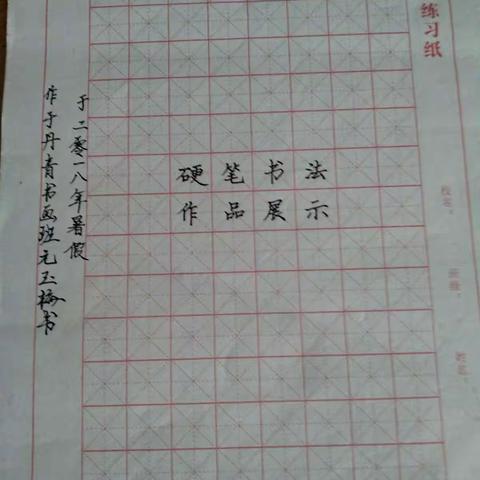 练习纸
校名：
班级：
姓名：
硬笔书法
作品展示
于二零一八年暑假
作于丹青书画班元玉梅书